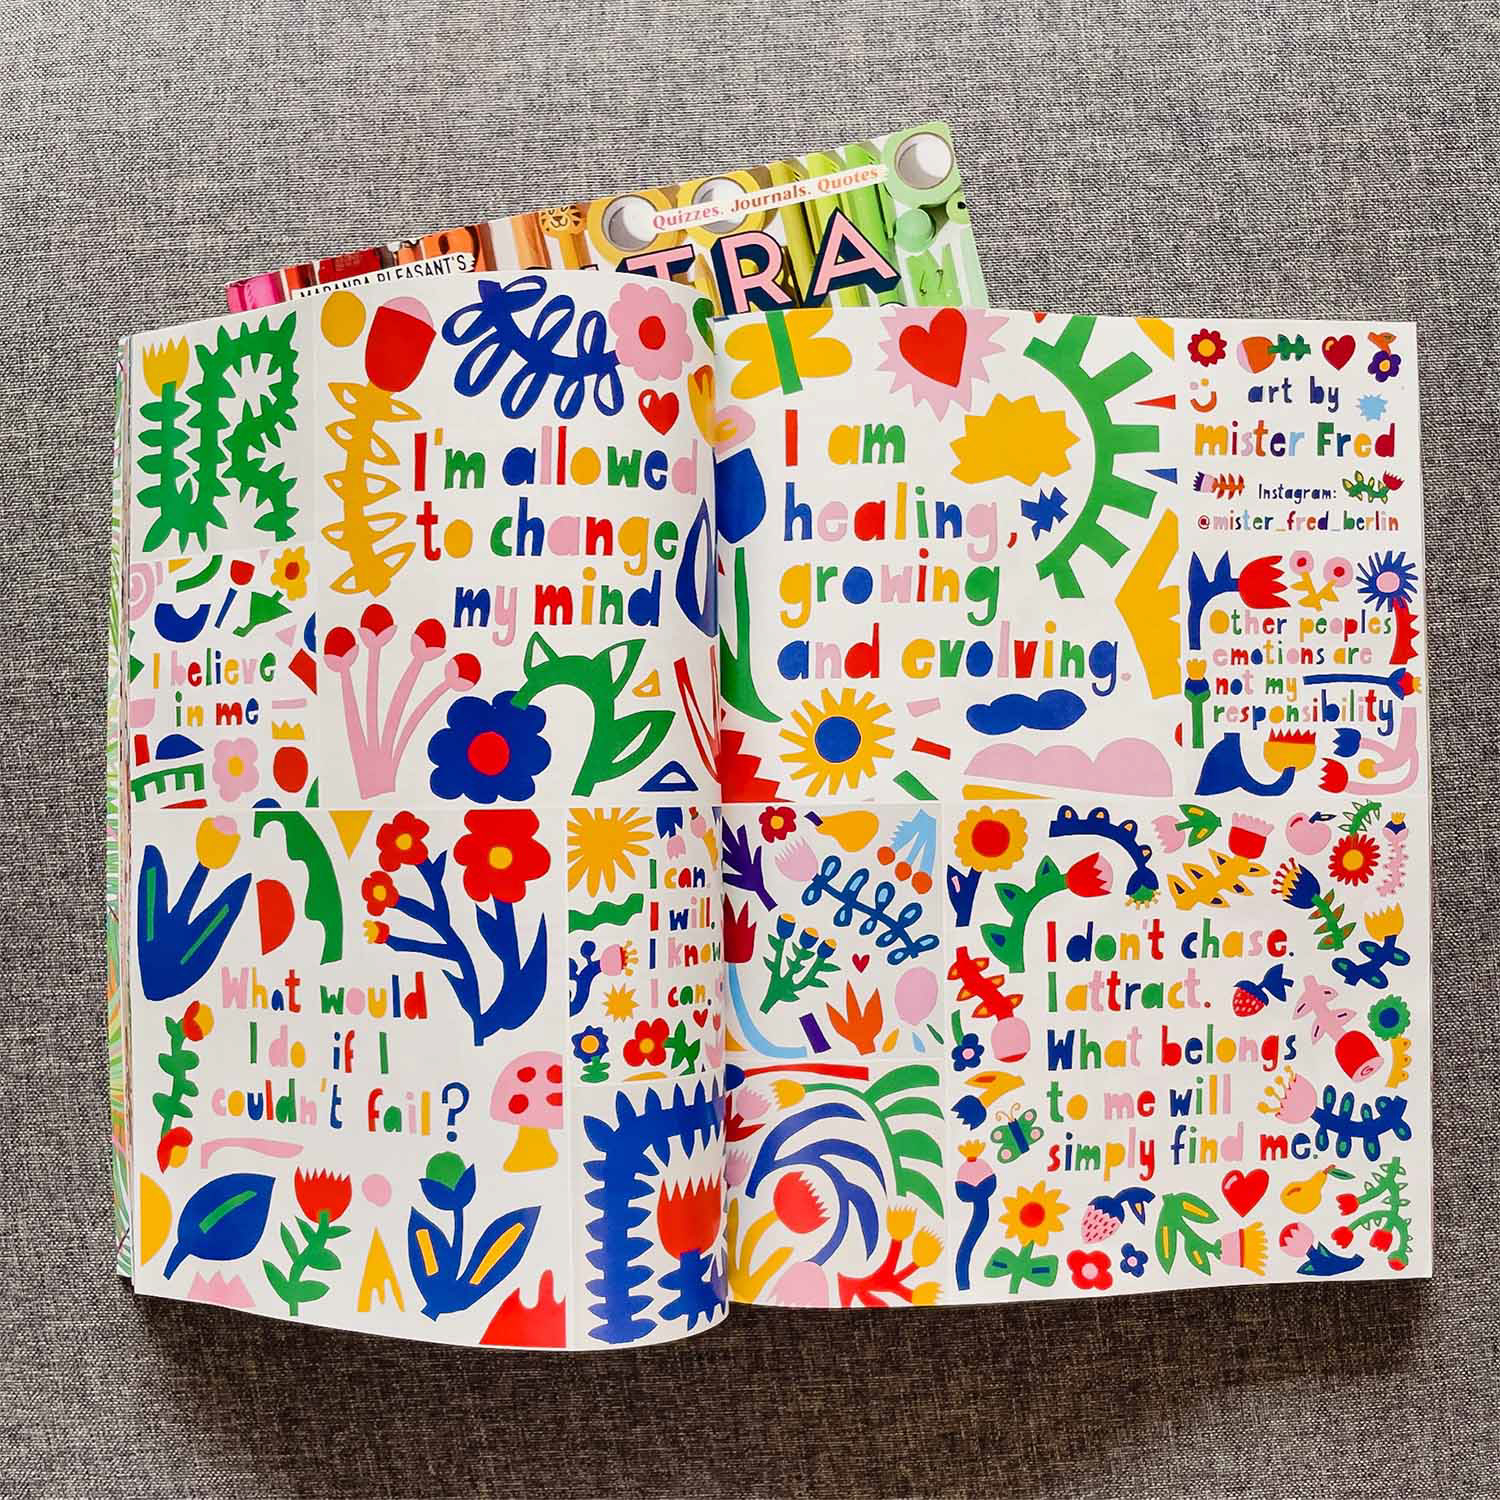 Quizzes. Journals. Quotes
MARANDA PLEASANT'S
TRA
I'm allowed
to change
my mind
I believe
in me
What would
I do if I
couldn't fail?
I can.
I will.
I know
I can.
I am
healing,
growing
and evolving.
art by
mister Fred
Instagram:
@mister_fred_berlin
Other peoples
emotions are
not my
responsibility
I don't chase.
I attract.
What belongs
to me will
simply find me.